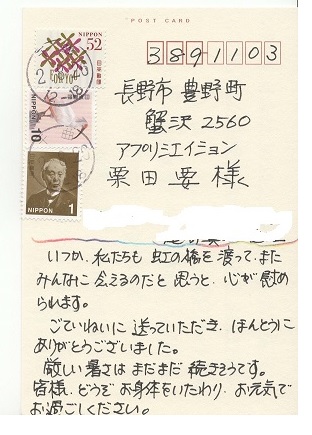 POST CARD
NIPPON 52
日本郵便
NIPPON 10
NIPPON 1
3891103
長野市豊野町
蟹沢2560
アプリシエイション
粟田要様
いつか、私たちも虹の橋を渡って、また
みんなに会えるのだと思うと、心が慰め
られます。
ごていねいに送っていただき、ほんとうに
ありがとうございました。
厳しい暑さはまだまだ続きそうです。
皆様、どうぞお身体をいたわり、お元気で
お過ごしください。